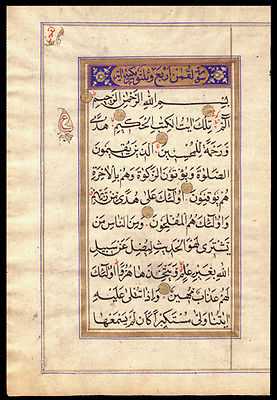 سورة لقمن اربع وثلثون
بِسْمِ اللهِ الرَّحْمٰنِ الرَّحِيمِ
الٓمٓ تِلْكَ اٰيٰتُ الْكِتٰبِ الْحَكِيمِ هُدًى
وَرَحْمَةً لِلْمُحْسِنِينَ الَّذِينَ يُقِيمُونَ
الصَّلٰوةَ وَيُؤْتُونَ الزَّكٰوةَ وَهُمْ بِالْاٰخِرَةِ
هُمْ يُوقِنُونَ اُولٰئِكَ عَلٰى هُدًى مِنْ رَبِّهِمْ
وَاُولٰئِكَ هُمُ الْمُفْلِحُونَ وَمِنَ النَّاسِ مَنْ
يَشْتَرِى لَهْوَ الْحَدِيثِ لِيُضِلَّ عَنْ سَبِيلِ
اللهِ بِغَيْرِ عِلْمٍ وَيَتَّخِذَهَا هُزُوًا اُولٰئِكَ
لَهُمْ عَذَابٌ مُهِينٌ وَاِذَا تُتْلٰى عَلَيْهِ
اٰيٰتُنَا وَلّٰى مُسْتَكْبِرًا كَاَنْ لَمْ يَسْمَعْهَا
ع